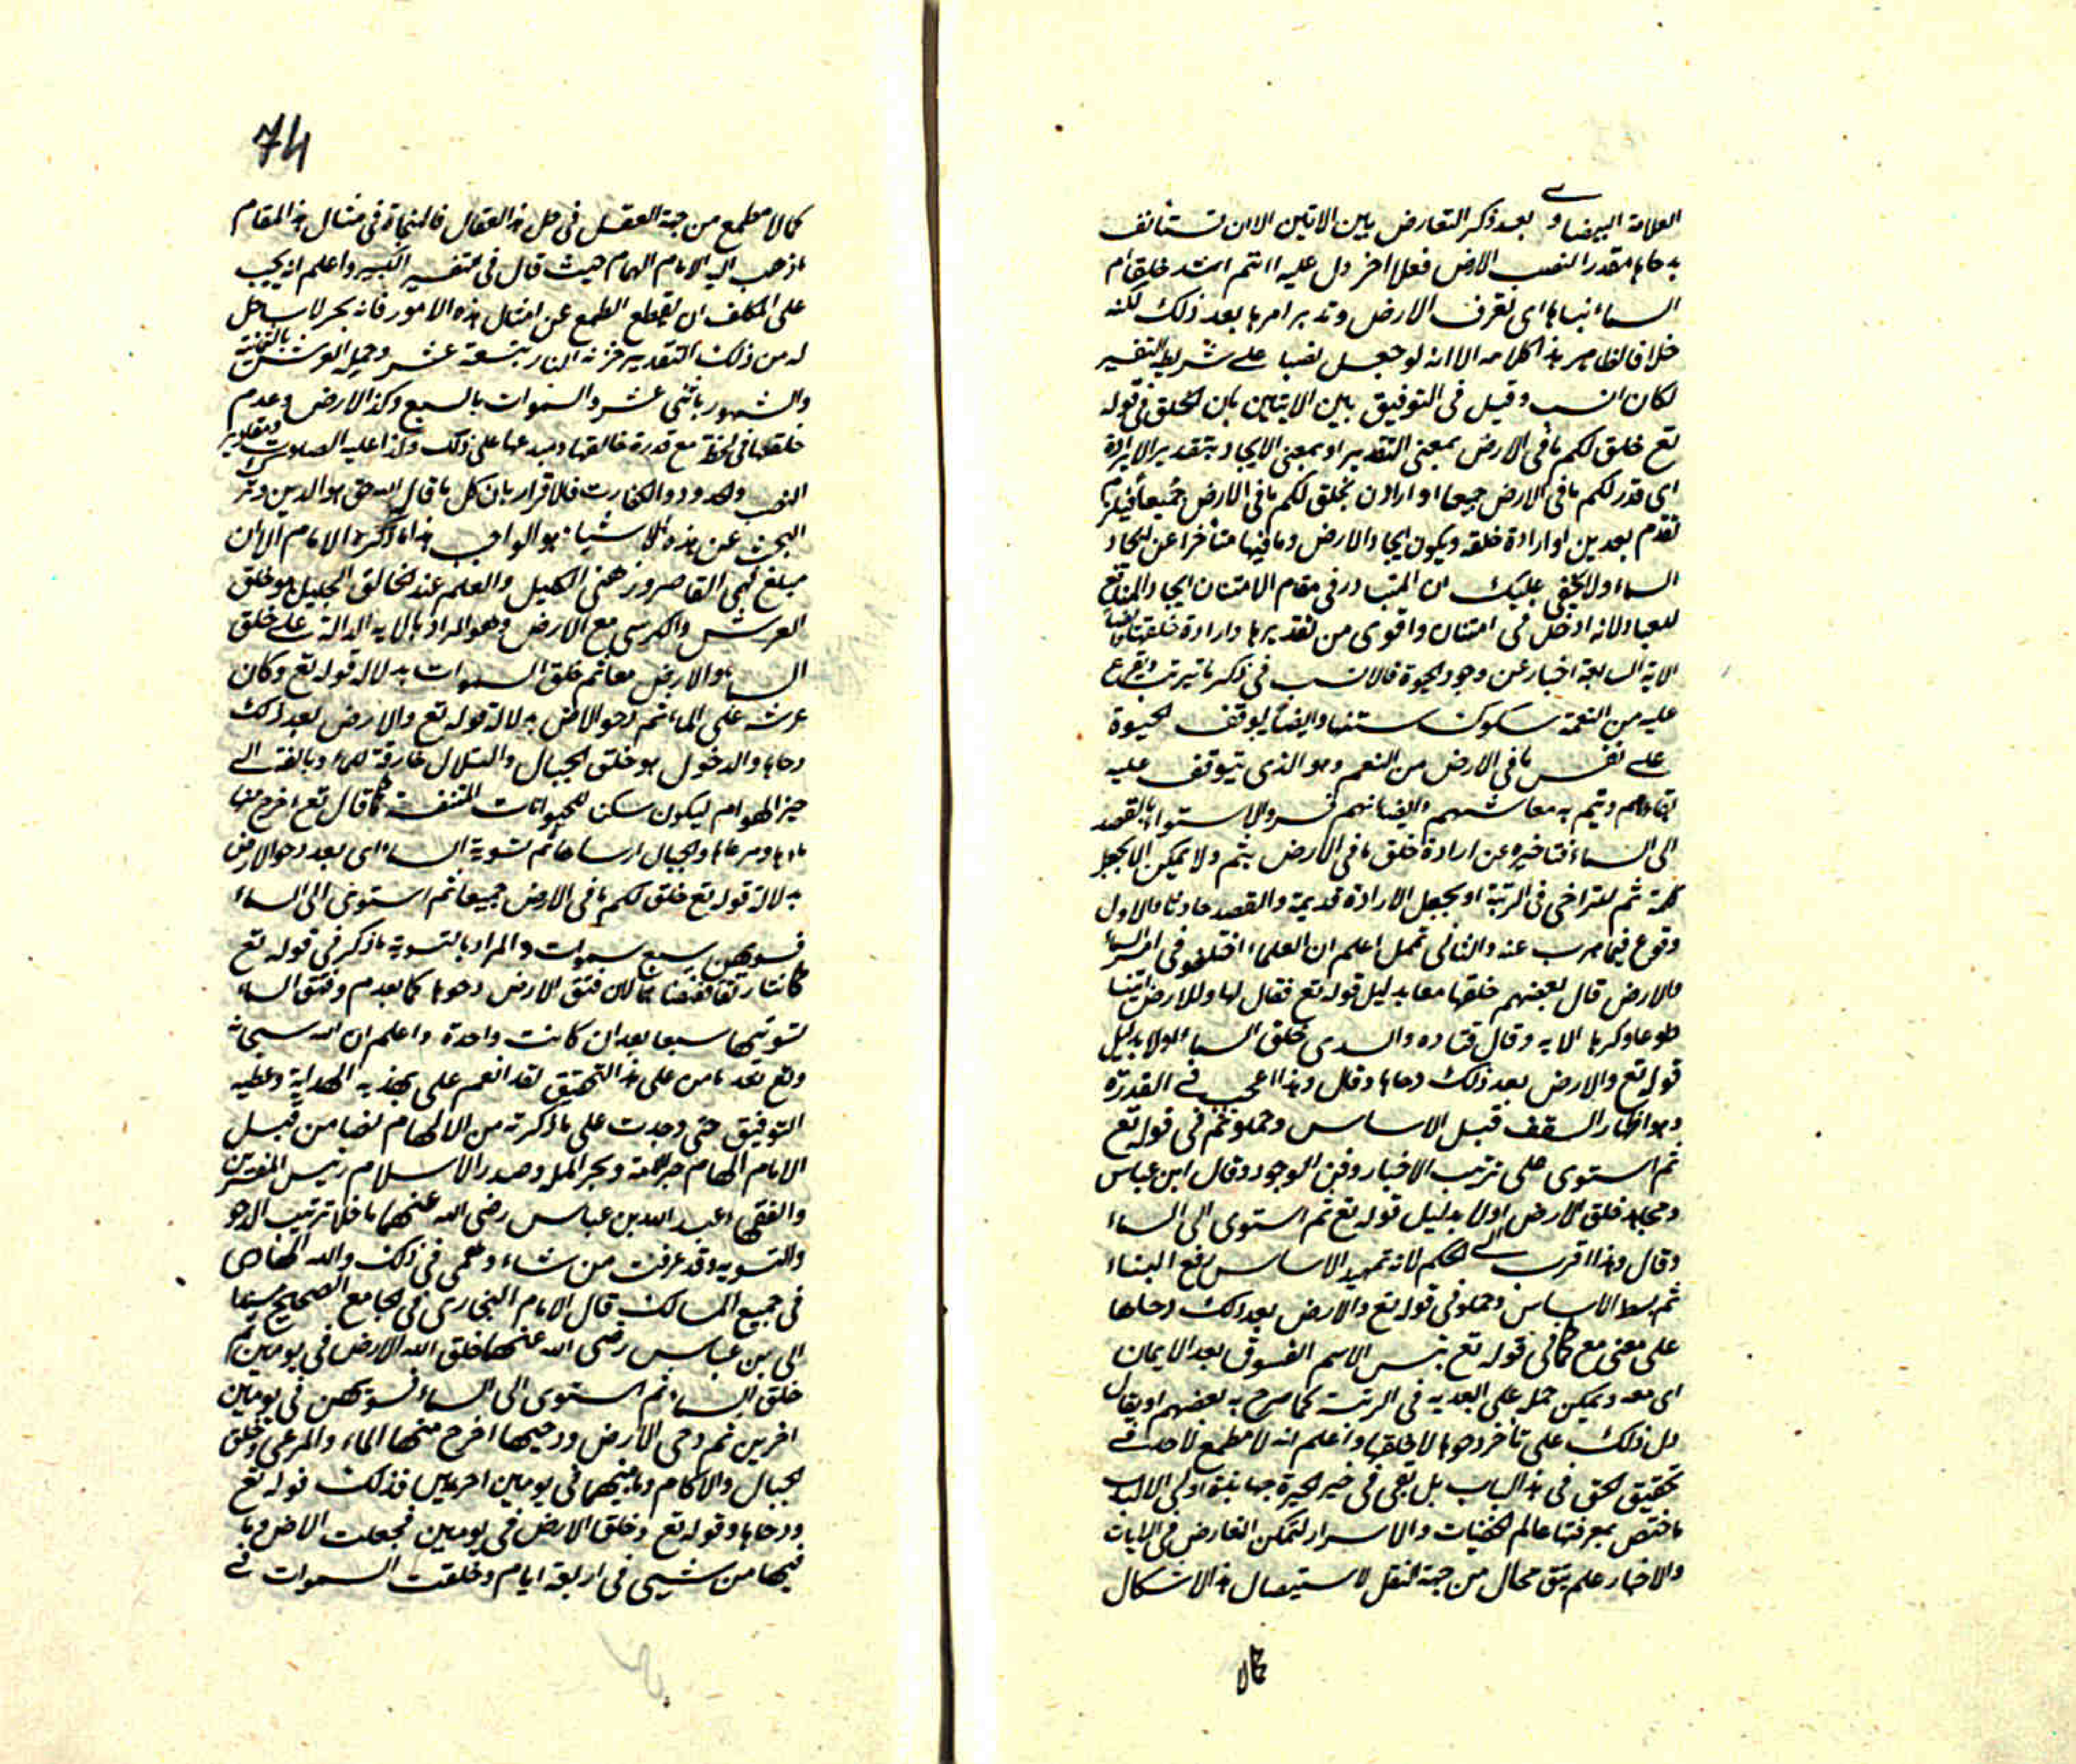 العلامة البيضاوي بعد ذكر التعارض بين الايتين الا ان تستأنف
بدحاها مقدرا لنصب الارض فعلا اخر دل عليه اانتم اشد خلقا ام
السماء بناها اى تعرف الارض وتدبر امرها بعد ذلك لكنه
خلاف الظاهر هذا كلامه الا انه لو جعل نصبا على شريطة التفسير
لكان انسب وقيل في التوفيق بين الايتين بان الخلق في قوله
تع خلق لكم ما في الارض بمعنى التقدير او بمعنى الايجاد بتقدير الارادة
اى قدر لكم ما في الارض جميعا او اراد ان يخلق لكم ما في الارض جميعا
تقدم او ارادة خلقه ويكون ايجاد الارض وما فيها متأخرا عن ايجاد
السماء ولا يخفى عليك ان المتبادر في مقام الامتنان ايجاد المنافع
للعباد لانه ادخل في امتنان واقوى من تقديرها وارادة خلقها
الاية السابقة اخبار عن وجود الحيوة فالانسب في ذكر ما يترتب
عليه من النعمة وايضا يوقف الحيوة
على نفس ما في الارض من النعم وهو الذى يتوقف عليه
بقاءهم ويتم به معاشهم وايضا انهم فسروا الاستواء بالقصد
الى السماء فتاخيره عن ارادة خلق ما في الارض يتم ولا يمكن الا بجعل
كلمة ثم لتراخى في الرتبة او بجعل الارادة قديمة والقصد حادثا فالاول
وقوع فيما هرب عنه والثانى تمحل اعلم ان العلماء اختلفوا في امر السماء
والارض قال بعضهم خلقها معا بدليل قوله تع فقال لها وللارض ائتيا
طوعا وكرها الاية وقال قتاده والسدى خلق السماء اولا بدليل
قوله تع والارض بعد ذلك دحاها وقال وهذا اعجب في القدرة
وهو اظهار السقف قبل الاساس وحملو ثم في قوله تع
ثم استوى على ترتيب الاخبار وفق الوجود وقال ابن عباس
ومجاهد خلق الارض اولا بدليل قوله تع ثم استوى الى السماء
وقال وهذا اقرب الى الحكم لانه تمهيد الاساس رفع البناء
ثم بسط الاساس وحملو في قوله تع والارض بعد ذلك دحاها
على معنى مع كما في قوله تع بئس الاسم الفسوق بعد الايمان
اى معه ويمكن حمل على البعدية في الرتبة كما صرح به بعضهم او يقال
دل ذلك على تأخر دحوها لا خلقها واعلم انه لا مطمع لاحد في
تحقيق الحق في هذا الباب بل بقى في الحيرة جهابذة اولى الالباب
ما اختص بمعرفتها عالم الخفيات والاسرار لتمكن التعارض في الايات
والاخبار علم يبق مجال من جهة النقل لاستيصال هذا الاشكال
كمالا
74
كما لا مطمع من جهة العقل في حل هذا العقال فالنجاة في مثال هذا المقام
ما ذهب اليه الامام الهمام حيث قال في تفسير الكبير واعلم انه يجب
على المكلف ان يقطع الطمع عن امثال هذه الامور فانه بحر لا ساحل
له من ذلك التقدير خزنة النار بتسعة عشر وحملة العرش بالثمانية
والشهور باثنى عشر والسموات بالسبع وكذا الارض وعدم
خلقها في لحظة مع قدرة خالقها ومبدعها على ذلك وكذا عليه الصلوت ومقادير
النصب والحدود والكفارت فالاقرار بان كل ما قال الله حق هو الدين وترك
البحث عن هذه الاشياء هو الواجب هذا ما ذكره الامام الا ان
مبلغ فهمى القاصر وذهنى الكليل والعلم عند الخالق الجليل هو خلق
العرش والكرسى مع الارض وهو المراد بالاية الدالة على خلق
السماء والارض معا ثم خلق السموات بدلالة قوله تع وكان
عرشه على الماء ثم دحو الارض بدلالة قوله تع والارض بعد ذلك
دحاها والدخول هو خلق الجبال والتلال خارقة للماء وبالغة الى
حيز الهوام ليكون سكنا للحيوانات المتنفسة كما قال تع اخرج منها
ماءها ومرعاها والجبال ارساها ثم تسوية السماء اى بعد دحو الارض
بدلالة قوله تع خلق لكم ما في الارض جميعا ثم استوى الى السماء
فسويهن سبع سموات والمراد بالتسوية ما ذكر في قوله تع
كانتا رتقا ففتقناهما لان فتق الارض دحوها كما تقدم وفتق السماء
تسويتها سبعا بعد ان كانت واحدة واعلم ان الله سبحانه
وتع بعد ما من على هذا التحقيق لقد انعم على بهذيه الهداية وعطية
التوفيق حتى وجدت على ما ذكرته من الالهام نصا من قبل
الامام الهمام حبر الامة وبحر الملة وصدر الاسلام رئيس المفسرين
والفقهاء عبد الله بن عباس رضى الله عنهما ما خلا ترتيب الدحو
والتسوية وقد عرفت من شاء وهمى في ذلك والله الهادى
في جميع المسالك قال الامام البخارى في الجامع الصحيح مسندا
الى بن عباس رضى الله عنهما خلق الله الارض في يومين ثم
خلق السماء ثم استوى الى السماء فسويهن في يومين
اخرين ثم دحى الارض ودحيها اخرج منها الماء والمرعى وخلق
الجبال والاكام وما بينهما في يومين اخريين فذلك قوله تع
ودحاها وقوله تع وخلق الارض في يومين فجعلت الارض وما
فيها من شيى في اربعة ايام وخلقت السموات في